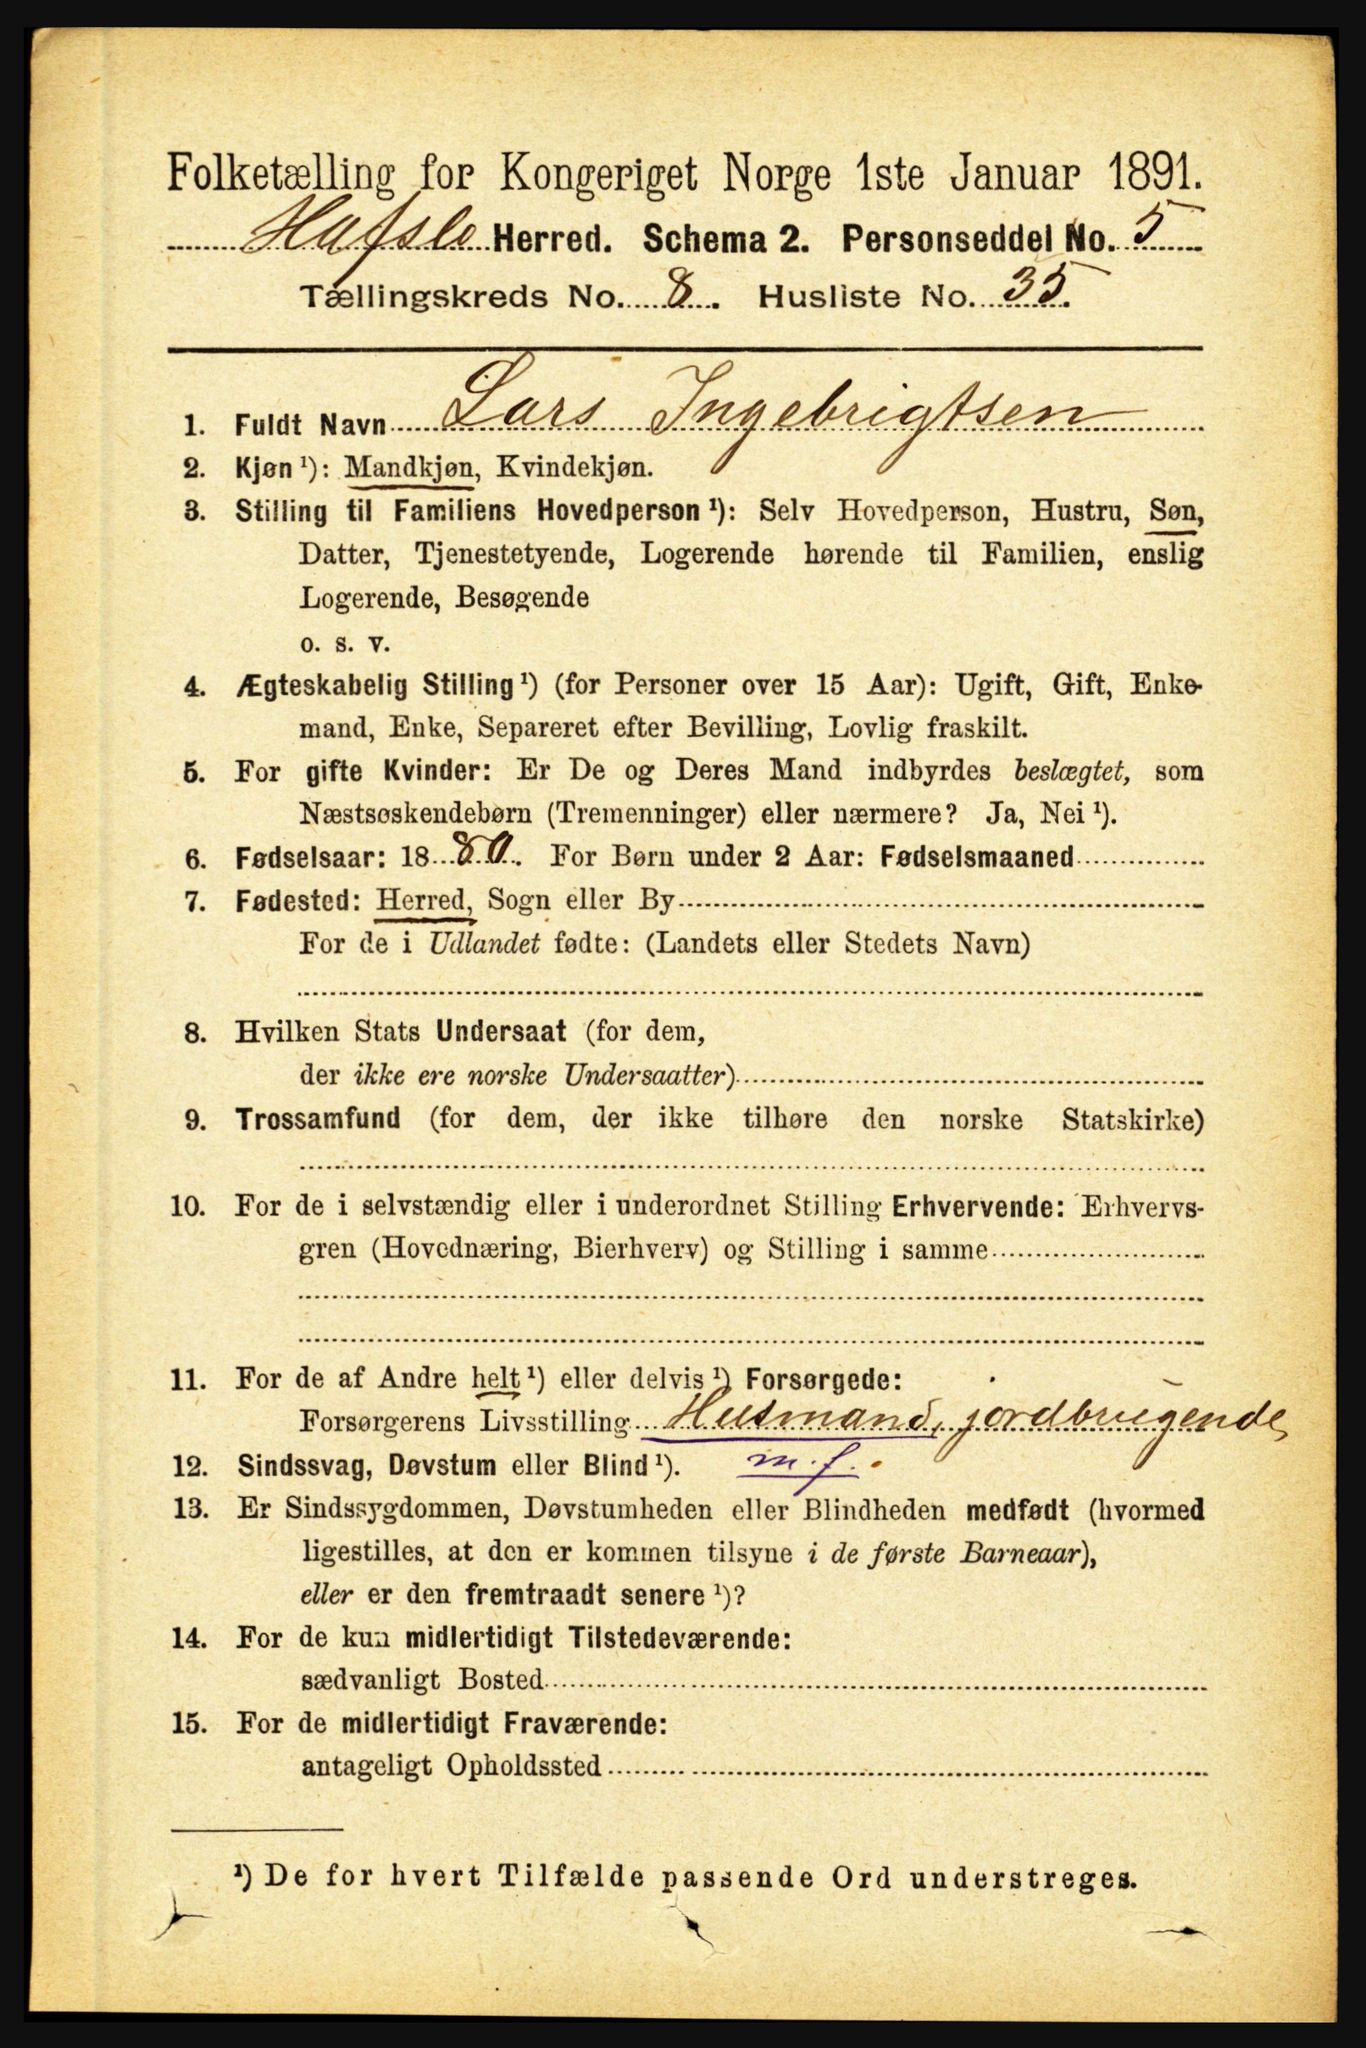 Folketælling for Kongeriget Norge 1ste Januar 1891.
Hafslo Herred. Schema 2. Personseddel No. 5
Tællingskreds No. 8. Husliste No. 35.
1. Fuldt Navn Lars Ingebrigtsen
2. Kjøn ¹): Mandkjøn, Kvindekjøn.
3. Stilling til Familiens Hovedperson ¹): Selv Hovedperson, Hustru, Søn,
Datter, Tjenestetyende, Logerende hørende til Familien, enslig
Logerende, Besøgende
o. s. v.
4. Ægteskabelig Stilling ¹) (for Personer over 15 Aar): Ugift, Gift, Enke-
mand, Enke, Separeret efter Bevilling, Lovlig fraskilt.
5. For gifte Kvinder: Er De og Deres Mand indbyrdes beslægtet, som
Næstsøskendebørn (Tremenninger) eller nærmere? Ja, Nei ¹).
6. Fødselsaar: 1880. For Børn under 2 Aar: Fødselsmaaned
7. Fødested: Herred, Sogn eller By
For de i Udlandet fødte: (Landets eller Stedets Navn)
8. Hvilken Stats Undersaat (for dem,
der ikke ere norske Undersaatter)
9. Trossamfund (for dem, der ikke tilhøre den norske Statskirke)
10. For de i selvstændig eller i underordnet Stilling Erhvervende: Erhvervs-
gren (Hovednæring, Bierhverv) og Stilling i samme
11. For de af Andre helt ¹) eller delvis ¹) Forsørgede:
Forsørgerens Livsstilling Husmand, jordbrugende
12. Sindssvag, Døvstum eller Blind ¹). m. f.
13. Er Sindssygdommen, Døvstumheden eller Blindheden medfødt (hvormed
ligestilles, at den er kommen tilsyne i de første Barneaar),
eller er den fremtraadt senere ¹)?
14. For de kun midlertidigt Tilstedeværende:
sædvanligt Bosted
15. For de midlertidigt Fraværende:
antageligt Opholdssted
¹) De for hvert Tilfælde passende Ord understreges.